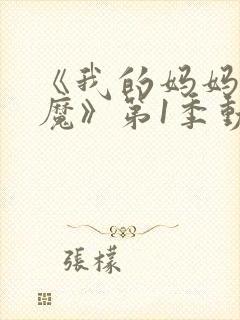 《我的妈妈
魔》第1季動
張檬